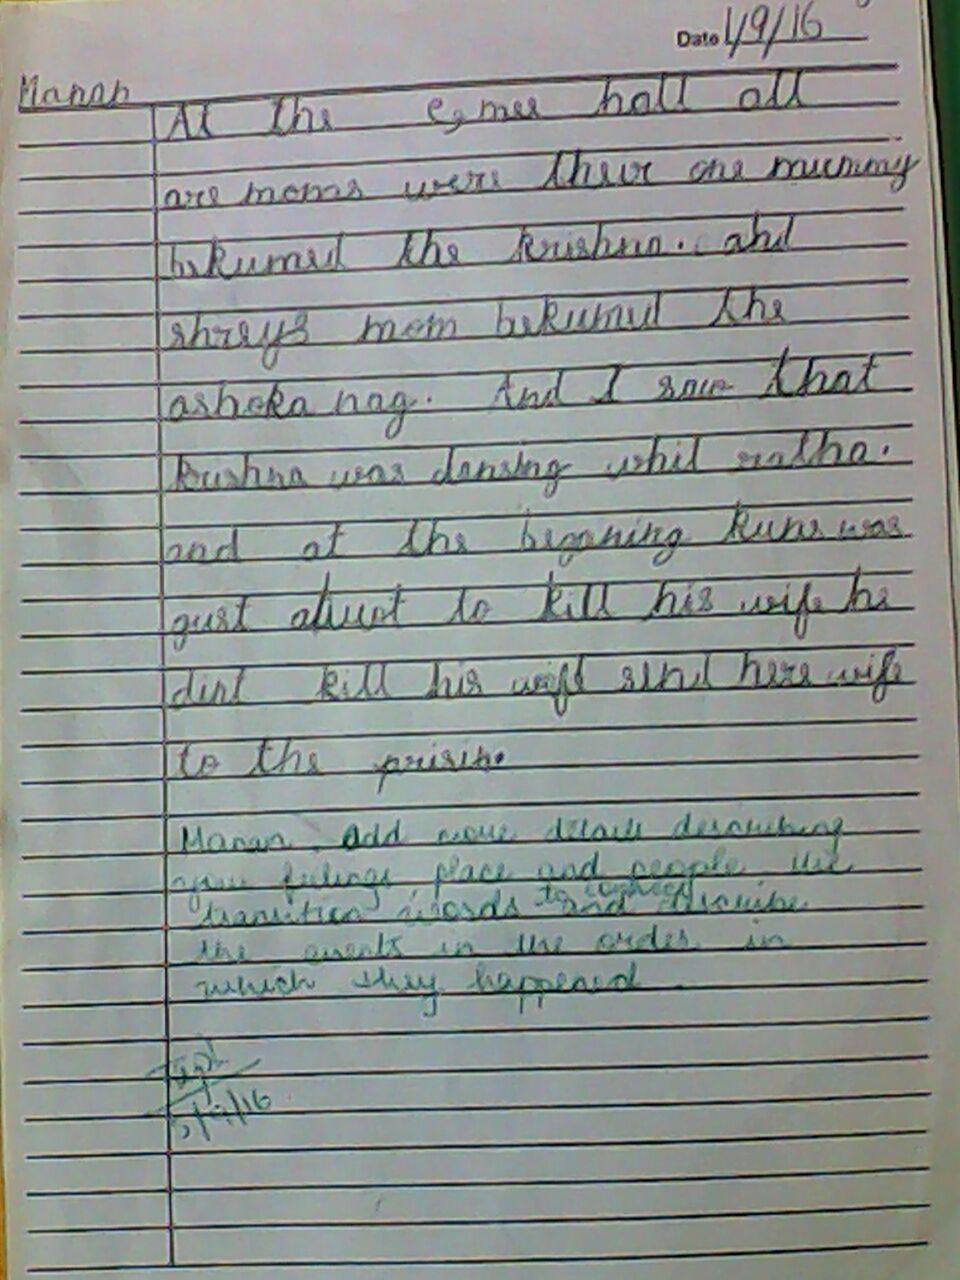 Date 1/9/16
Manan
At the hall all
are moms were their one mummy
bekumed the krishna. and
shreys mom bekumed the
ashoka nag. And I saw that
krishna was dansing whil radha.
and at the beganing Kuns was
gust abuot to kill his wife he
dint kill his wife send here wife
to the prisin.
Manan, Add more details describing
your feelings place and people. Use
transition words to connect and describe
the events in the order in
which they happened.
5/9/16